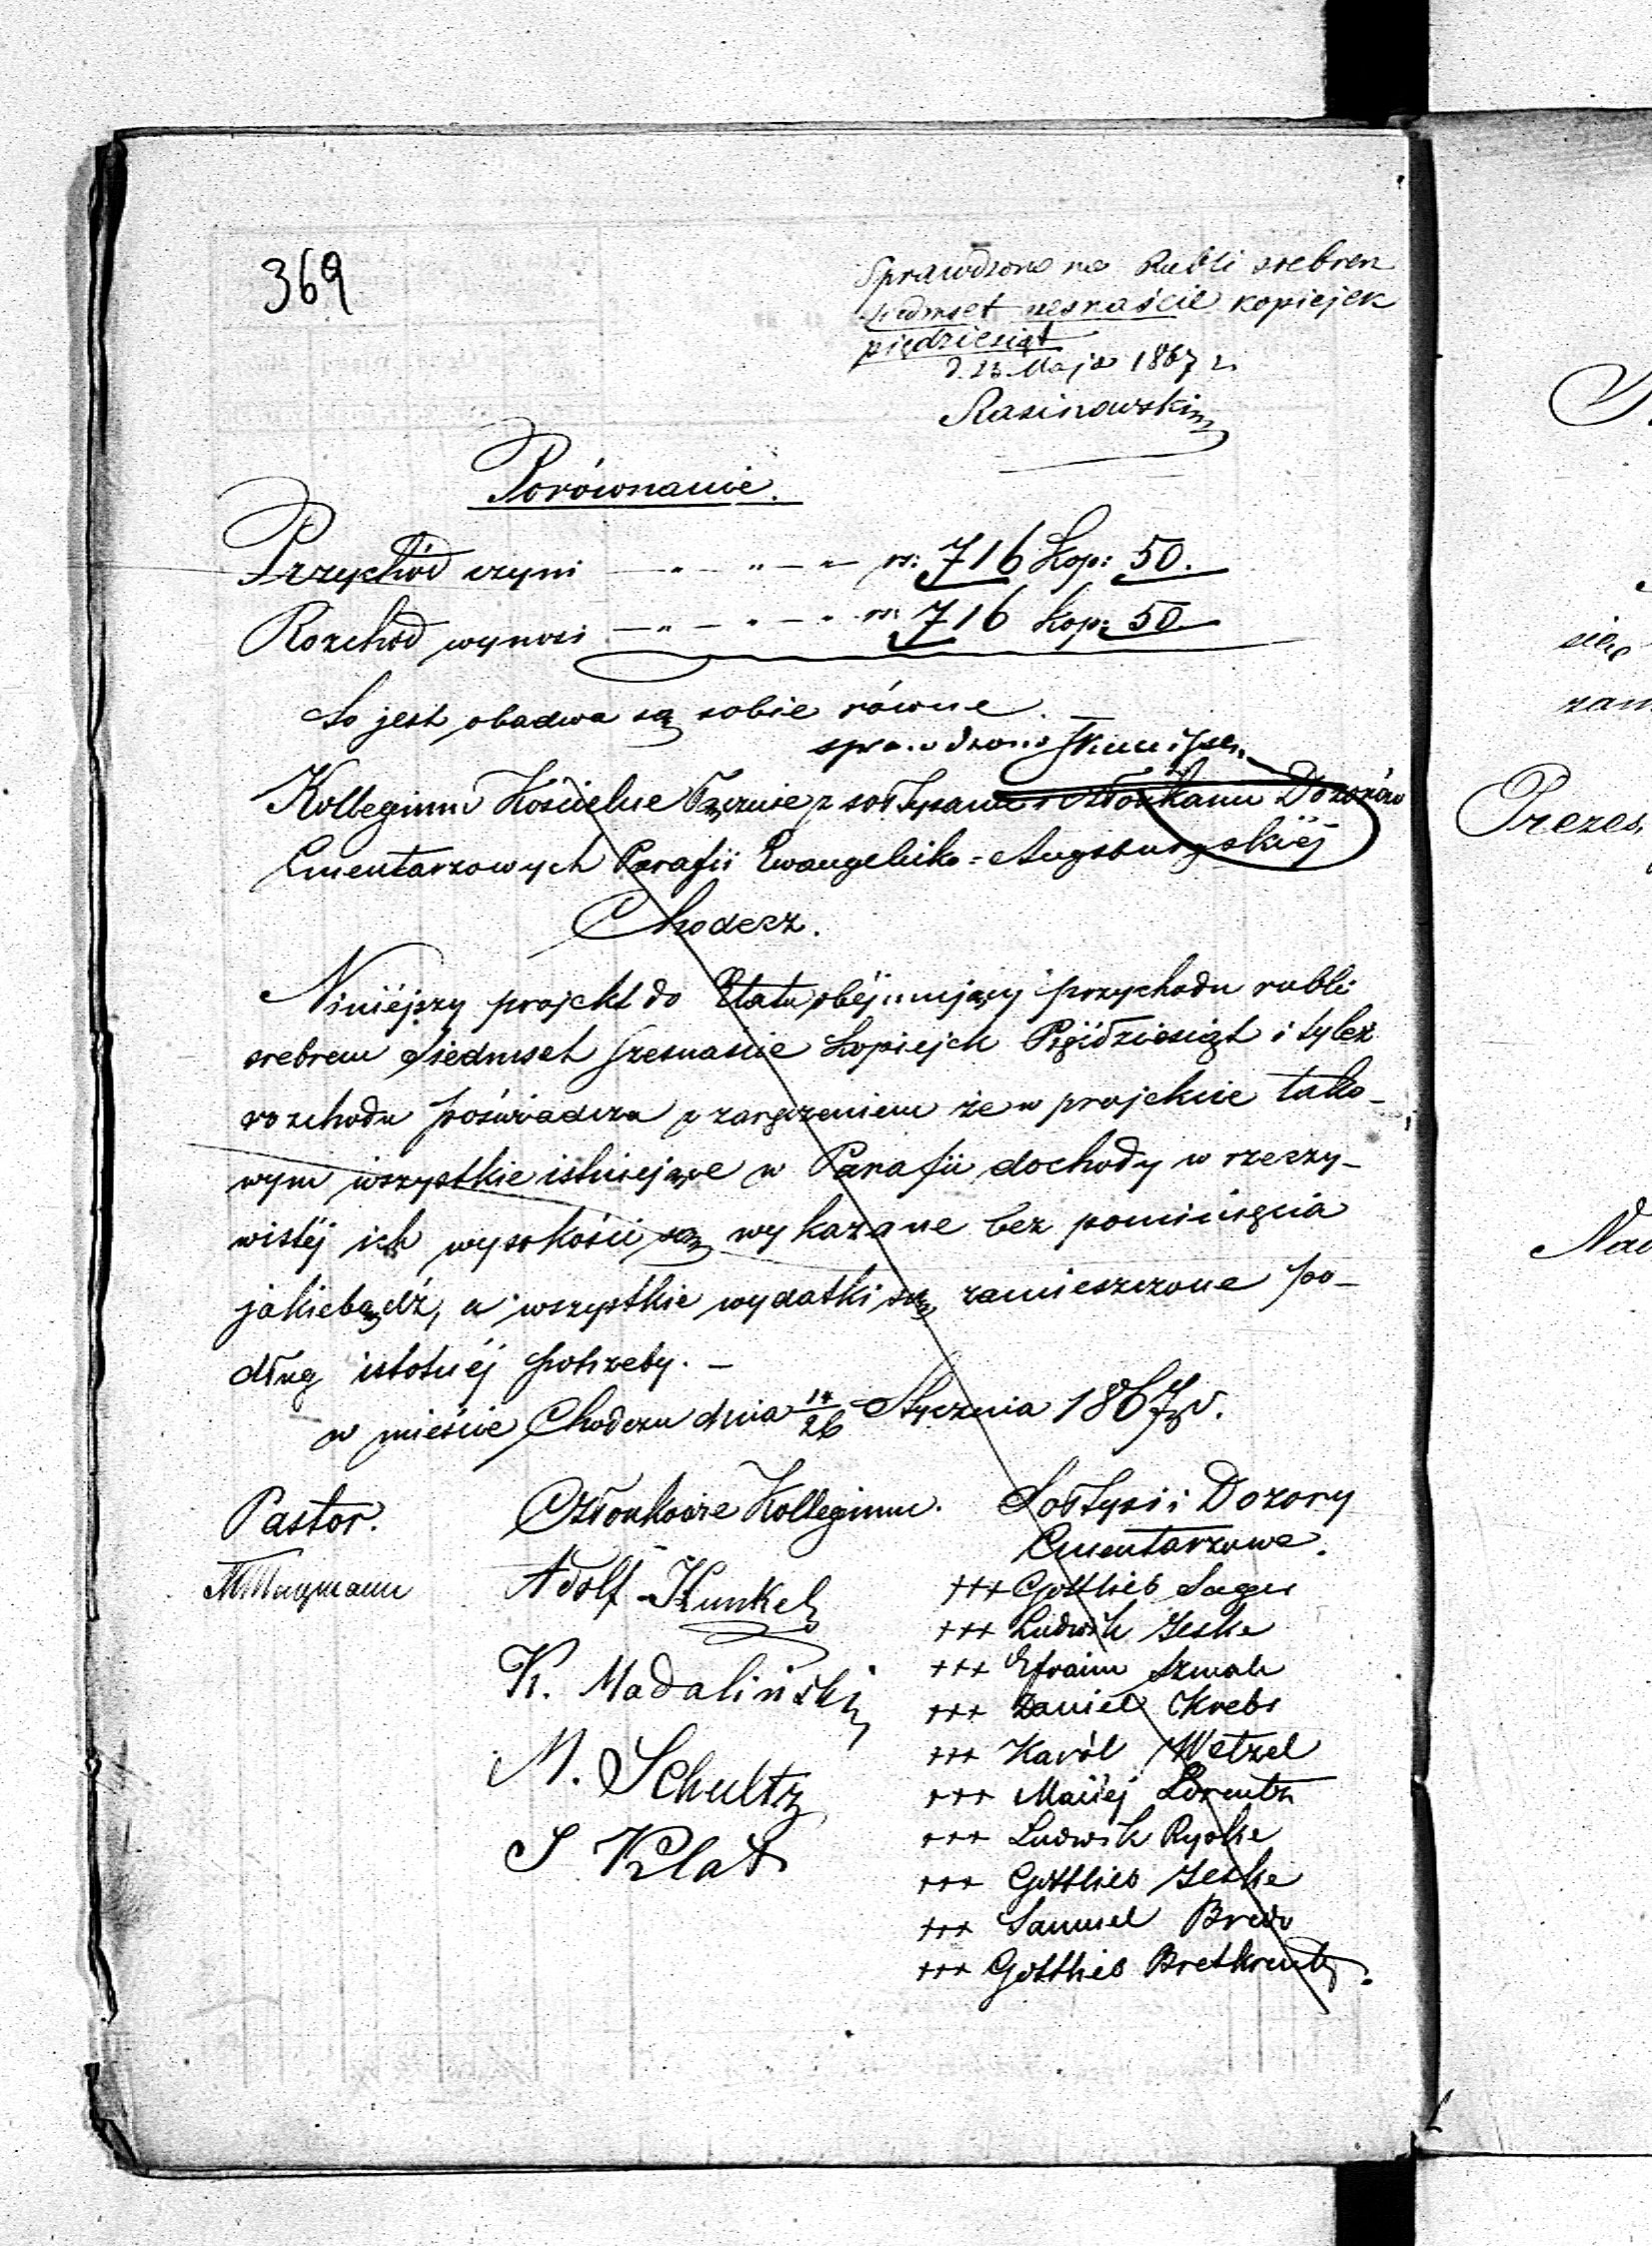 369
Sprawdzono na Rubli srebren
siedmset szesnaście kopiejek
pięćdziesiąt
d. 23 Maja 1867 r.
Rasinowski
Porównanie.
Przychód czyni — " — " — " — rs: 716 Kop: 50.
Rozchód wynosi — " — " — " rs: 716 kop: 50
To jest obadwa są sobie równe. —
sprawdzono
Kollegium Kościelne łącznie z sołtysami i członkami Dozorów
Cmentarzowych Parafii Ewangelicko=Augsburgskiéj
Chodecz.
Niniéjszy projekt do Etatu obéjmujący przychodu rubli
srebrem Siedmset szesnaście kopiejek Pięćdziesiąt i tyleż
rozchodu poświadcza z zaręczeniem że w projekcie tako-
wym wszystkie istniejące w Parafii dochody w rzeczy-
wistéj ich wysokości są wykazane bez pominięcia
jakiebądź, a wszystkie wydatki są zamieszczone po-
dług istotnéj potrzeby. —
w mieście Chodczu dnia 14/26 Stycznia 1867 r.
Pastor.
Członkowie Kollegium.
Sołtysi i Dozory
Cmentarzowe.
Adolf Kunkel
K. Madaliński
M. Schultz
S Klat
+++ Gottlieb Sager
+++ Ludwik Jeske
+++ Efraim Szmale
+++ Daniel Krebs
+++ Karól Wetzel
+++ Maciéj Lorentz
+++ Ludwik Rypke
+++ Gottlieb Jeske
+++ Samuel
+++ Gottlieb Bretkreutz.
Prezes